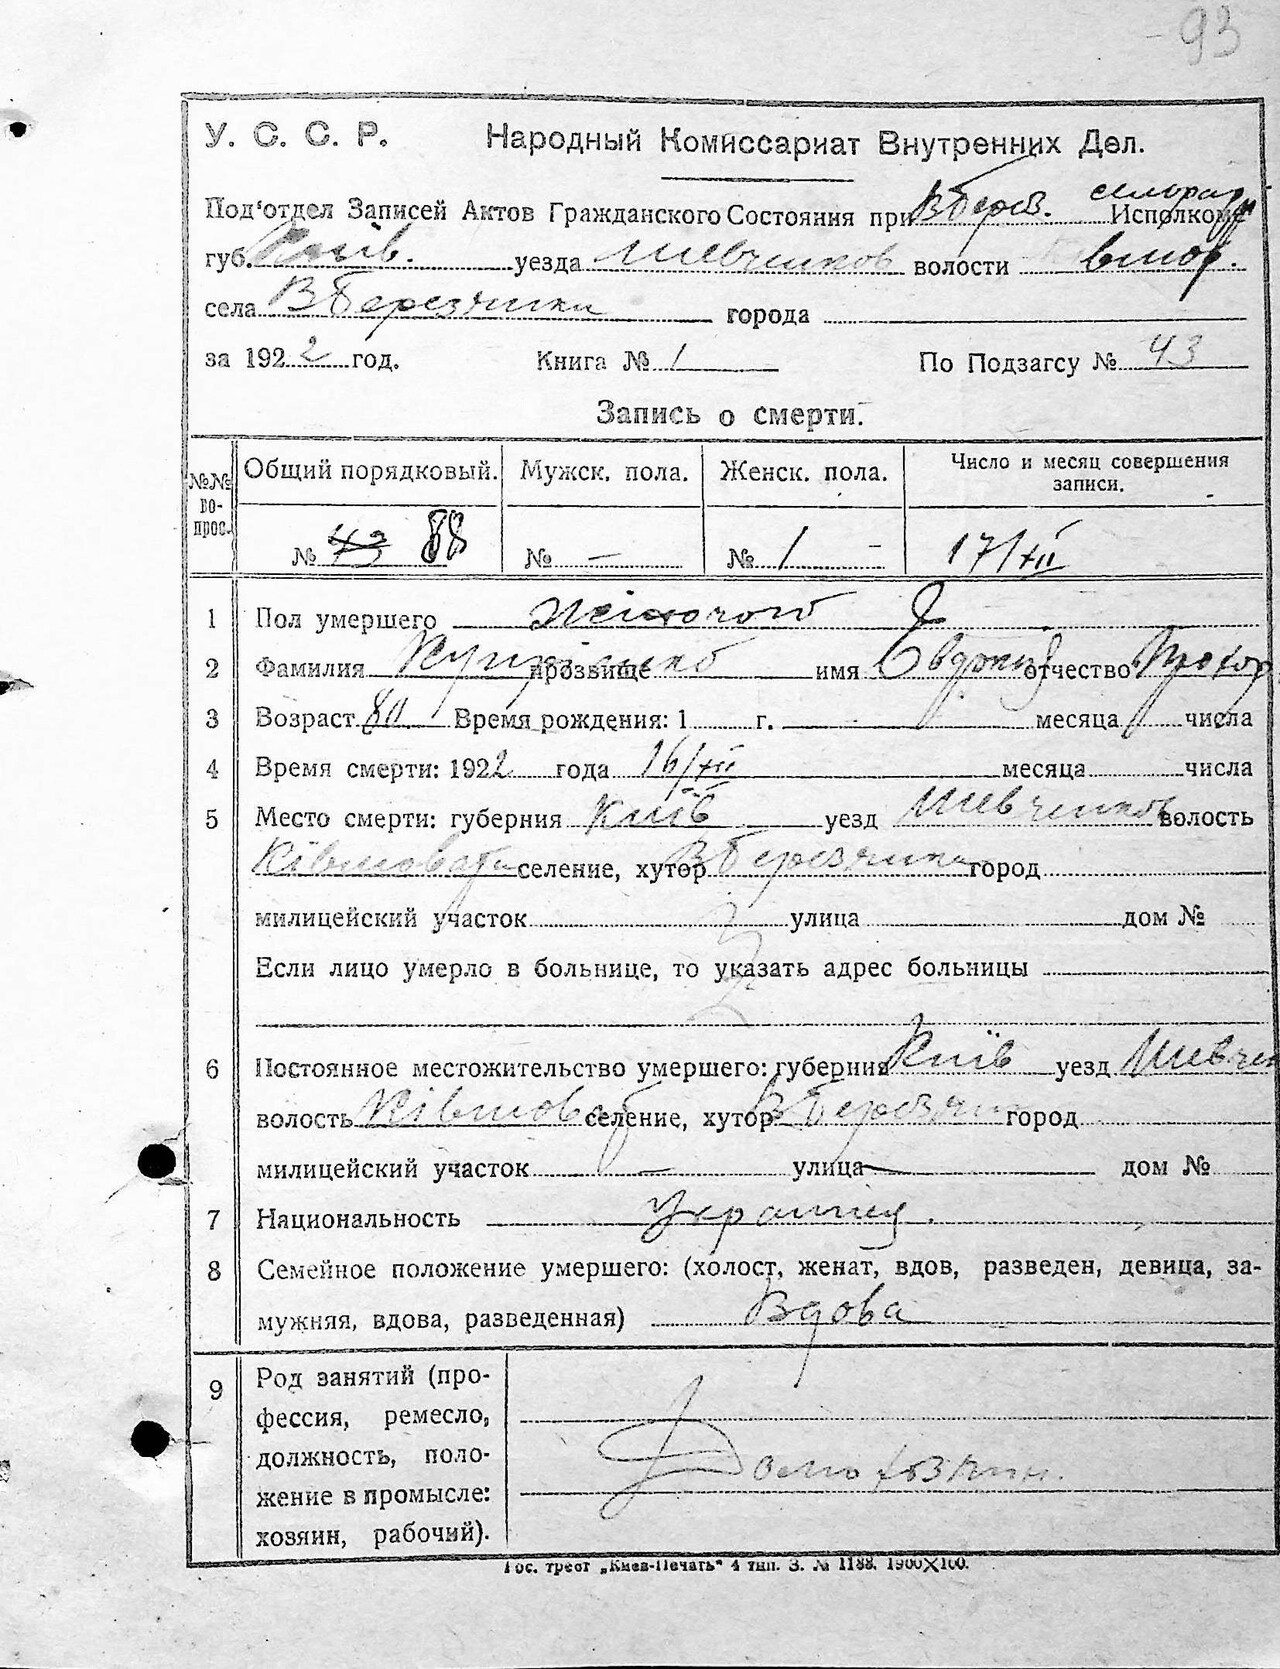 93
У. С. С. Р. Народный Комиссариат Внутренних Дел.
Под'отдел Записей Актов Гражданского Состояния при В Берез. сельрад Исполкоме
губ. Київ. уезда Шевченков волости Ківшов.
села В Березянки города
за 1922 год. Книга № 1 По Подзагсу № 43
Запись о смерти.
№№ вопрос. Общий порядковый. Мужск. пола. Женск. пола. Число и месяц совершения записи.
№ 43 88 № — № 1 — 17/XII
1 Пол умершего жіночого
2 Фамилия прозвище имя Євдокія отчество Прохор
3 Возраст 80 Время рождения: 1 г. месяца числа
4 Время смерти: 1922 года 16/XII месяца числа
5 Место смерти: губерния Київ уезд Шевченков волость
Ківшовата селение, хутор В Березянка город
милицейский участок улица дом №
Если лицо умерло в больнице, то указать адрес больницы
6 Постоянное местожительство умершего: губерния Київ уезд Шевчен
волость Ківшоват селение, хутор В Березян город
милицейский участок — улица — дом №
7 Национальность
8 Семейное положение умершего: (холост, женат, вдов, разведен, девица, за-
мужняя, вдова, разведенная) Вдова
9 Род занятий (про-
фессия, ремесло,
должность, поло-
жение в промысле:
хозяин, рабочий).
Гос. трест „Киев-Печать" 4 тип. З. № 1188. 1900X100.